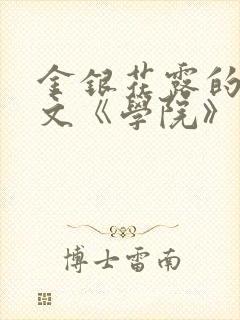 金銀花露的
文《學院》
博士雷南